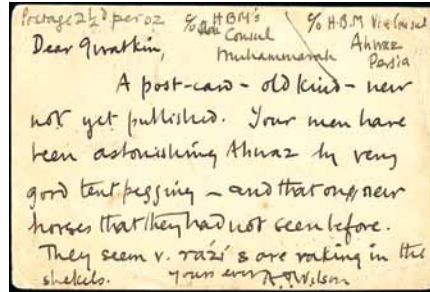 Postage 2½d per oz
c/o HBM's
Consul
Muhammarah
c/o H.B.M Vice Consul
Ahwaz
Persia
Dear Gwatkin,
A post-card - old kind - new
not yet published. Your men have
been astonishing Ahwaz by very
good tent pegging - and that on new
horses that they had not seen before.
They seem v. rázi & are raking in the
shekels. Yours ever A.T. Wilson